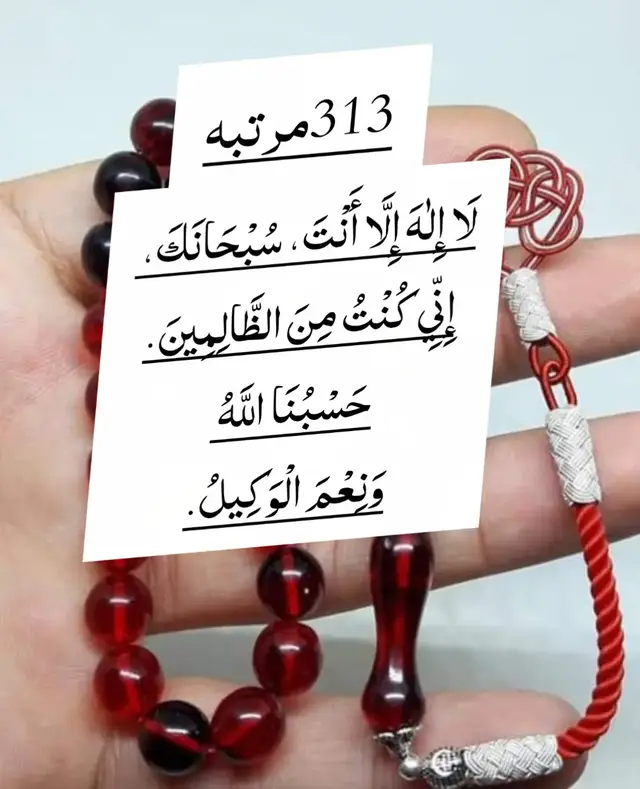 313مرتبه
لَا إِلٰهَ إِلَّا أَنْتَ، سُبْحَانَكَ،
إِنِّي كُنْتُ مِنَ الظَّالِمِينَ.
حَسْبُنَا اللَّهُ
وَنِعْمَ الْوَكِيلُ.